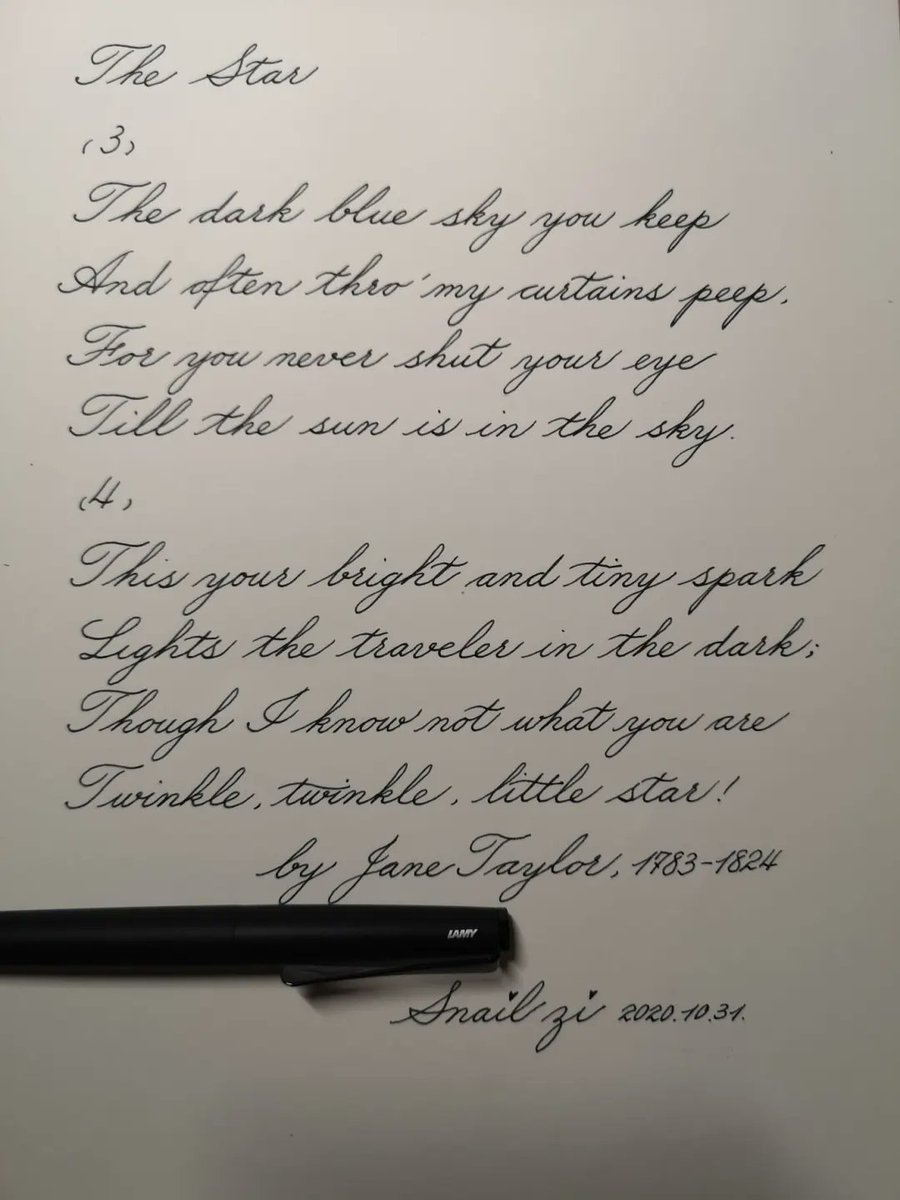 The Star
(3)
The dark blue sky you keep
And often thro' my curtains peep,
For you never shut your eye
Till the sun is in the sky.
(4)
This your bright and tiny spark
Lights the traveler in the dark;
Though I know not what you are
Twinkle, twinkle, little star!
by Jane Taylor, 1783-1824
LAMY
Snail zi 2020.10.31.